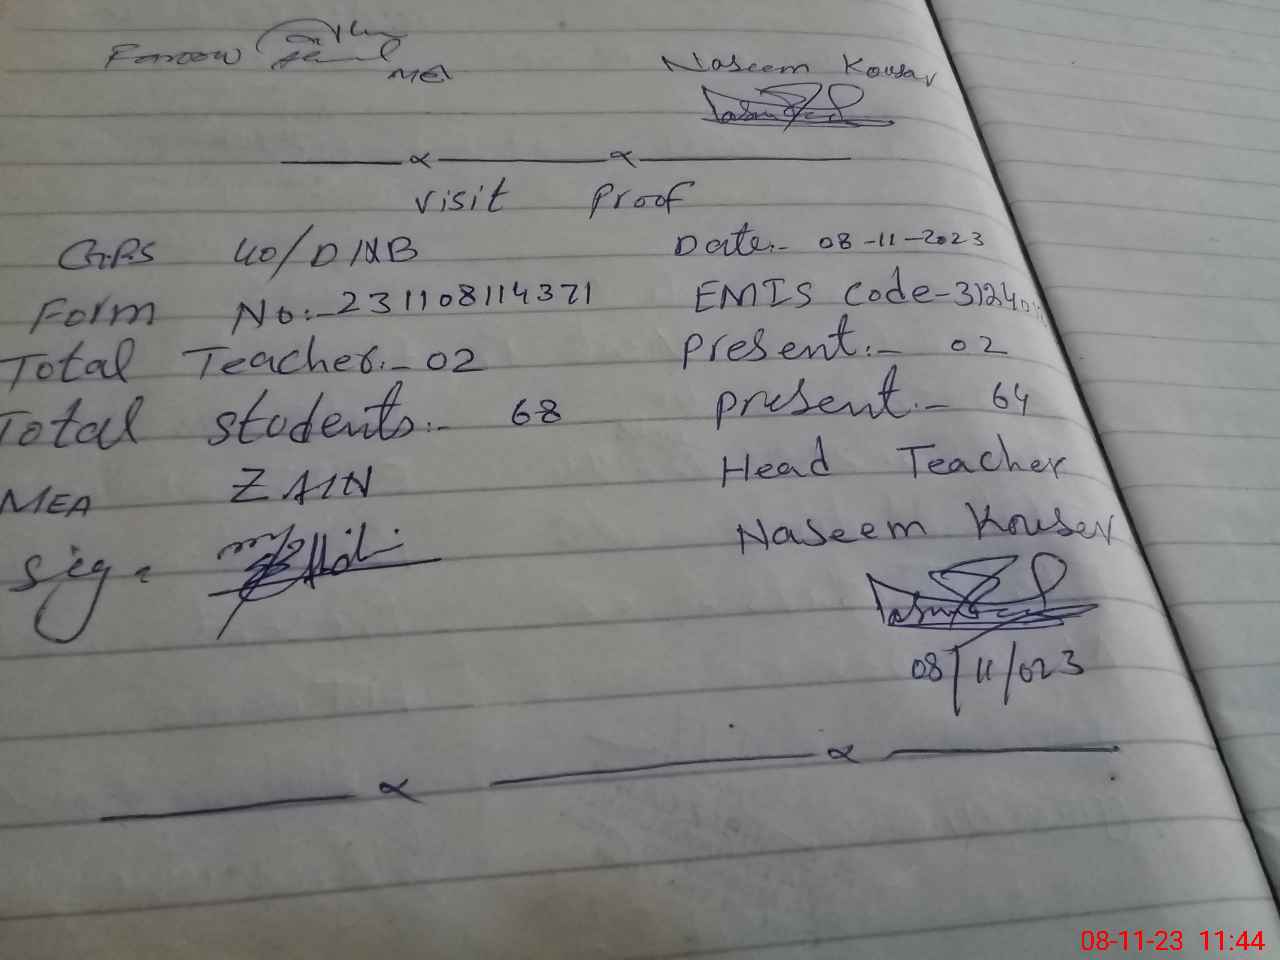 Farooq
MEA Naseem Kousar
visit Proof
GPS 40/DNB Date:- 08-11-2023
Form No:- 231108114371 EMIS Code-31240
Total Teacher:- 02 present:- 02
Total students:- 68 present:- 64
MEA ZAIN Head Teacher
Sig: Naseem Kouser
08/11/023
08-11-23 11:44